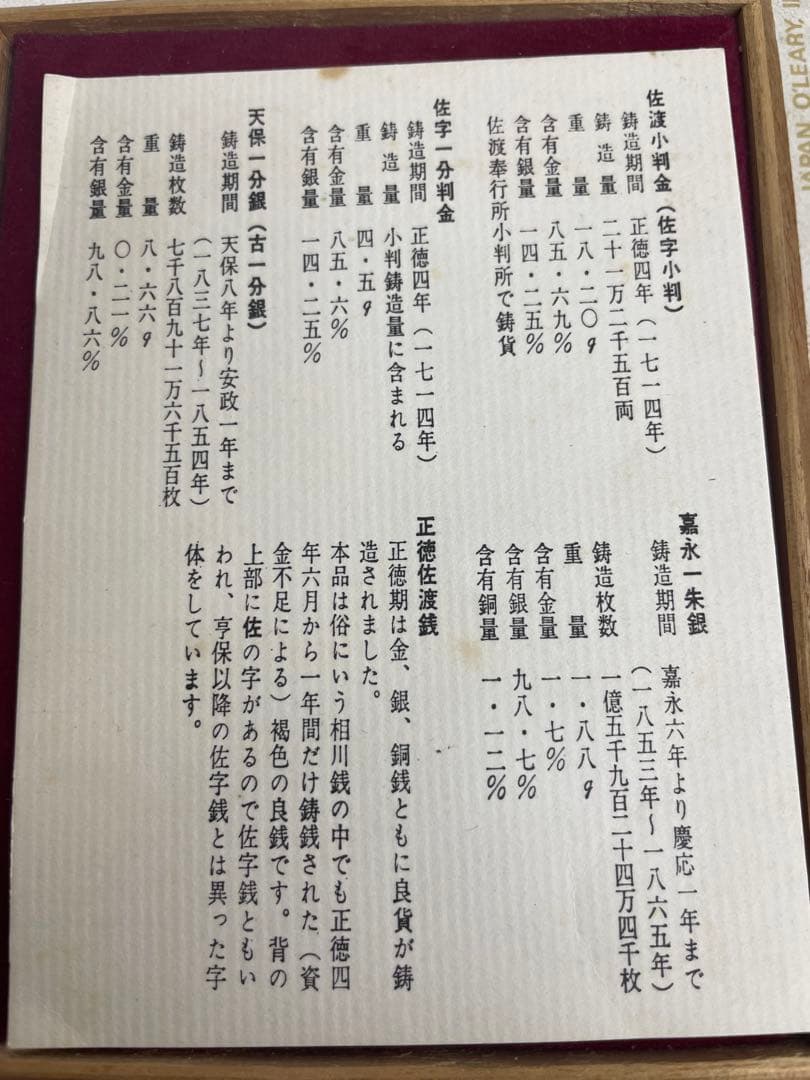 佐渡小判金（佐字小判）
鋳造期間　正徳四年（一七一四年）
鋳造量　二十一万二千五百両
重量　一八・二〇g
含有金量　八五・六九%
含有銀量　一四・二五%
佐渡奉行所小判所で鋳貨
佐字一分判金
鋳造期間　正徳四年（一七一四年）
鋳造量　小判鋳造量に含まれる
重量　四・五g
含有金量　八五・六%
含有銀量　一四・二五%
天保一分銀（古一分銀）
鋳造期間　天保八年より安政一年まで
（一八三七年～一八五四年）
鋳造枚数　七千八百九十一万六千五百枚
重量　八・六六g
含有金量　〇・二一%
含有銀量　九八・八六%
嘉永一朱銀
鋳造期間　嘉永六年より慶応一年まで
（一八五三年～一八六五年）
鋳造枚数　一億五千九百二十四万四千枚
重量　一・八八g
含有金量　一・七%
含有銀量　九八・七%
含有銅量　一・一二%
正徳佐渡銭
正徳期は金、銀、銅銭ともに良貨が鋳
造されました。
本品は俗にいう相川銭の中でも正徳四
年六月から一年間だけ鋳銭された（資
金不足による）褐色の良銭です。背の
上部に佐の字があるので佐字銭ともい
われ、亨保以降の佐字銭とは異った字
体をしています。
APAN O'LEARY